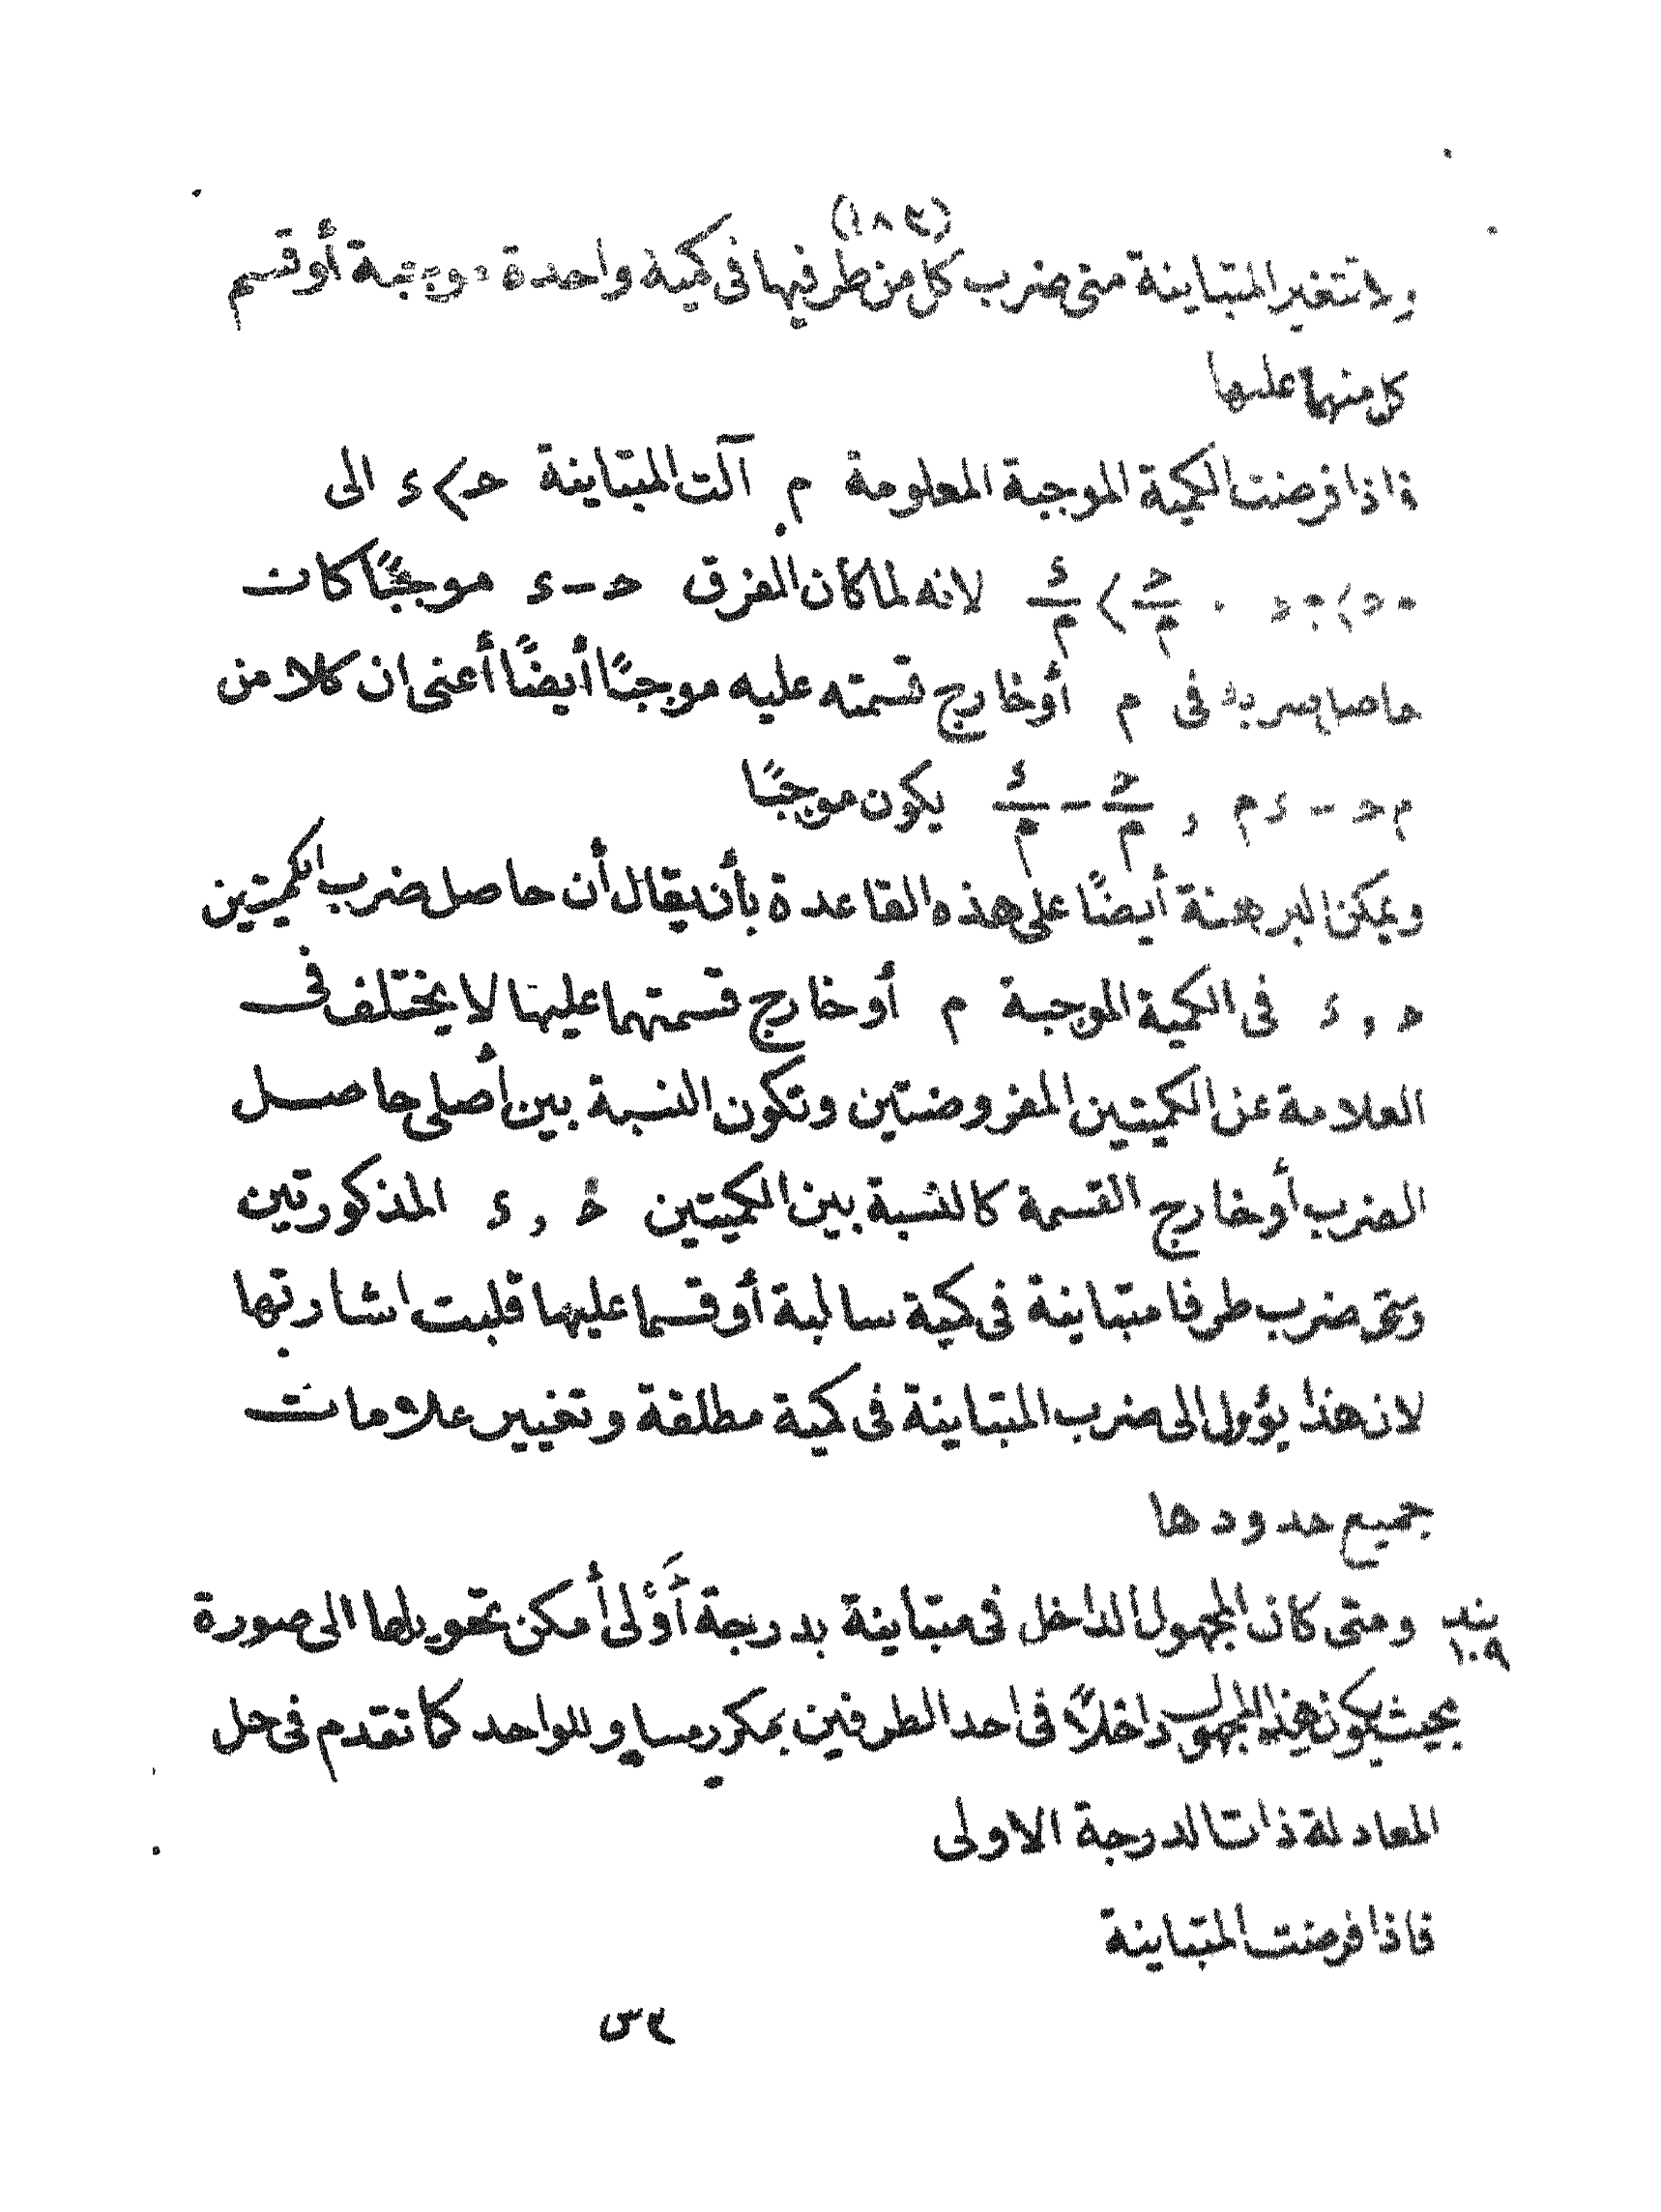 (١٨٤)
ولا تتغير المتباينة متى ضرب كل من طرفيها فى كمية واحدة موجبة أو قسم
كل منهما عليها
فاذا فرضت الكمية الموجبة المعلومة م آلت المتباينة حـ > ء الى
م حـ > م ء , حـ/م > ء/م لانه لما كان الفرق حـ - ء موجبًا كان
حاصل ضربه فى م أو خارج قسمته عليه موجبًا أيضًا أعنى ان كلا من
م حـ - ء م , حـ/م - ء/م يكون موجبًا
ويمكن البرهنة أيضًا على هذه القاعدة بأن يقال أن حاصل ضرب الكميتين
حـ , ء فى الكمية الموجبة م أو خارج قسمتهما عليها لا يختلف فى
العلامة عن الكميتين المفروضتين وتكون النسبة بين أصلى حاصل
الضرب أو خارج القسمة كالنسبة بين الكميتين حـ , ء المذكورتين
ومتى ضرب طرفا متباينة فى كمية سالبة أو قسما عليها قلبت اشارتها
لان هذا يؤول الى ضرب المتباينة فى كمية مطلقة وتغيير علامات
جميع حدودها
بند ١٠٩ ومتى كان المجهول الداخل فى متباينة بدرجة أَوْلى أمكن تحويلها الى صورة
بحيث يكون هذا المجهول داخلاً فى احد الطرفين بمكرر مساوٍ للواحد كما تقدم فى حل
المعادلة ذات الدرجة الاولى
فاذا فرضت المتباينة
٢س